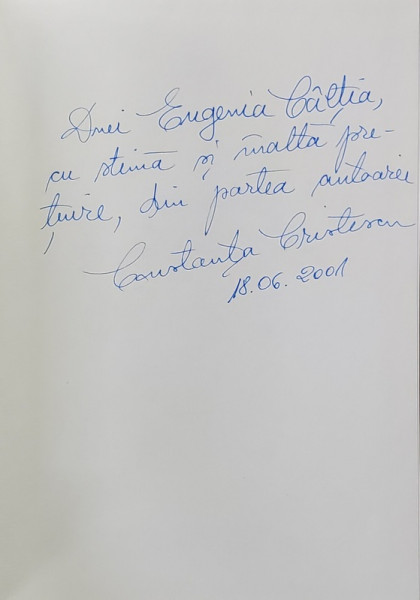 Dnei Eugenia Câlția,
cu stimă și înaltă pre-
țuire, din partea autoarei
Constanța Cristescu
18.06.2001